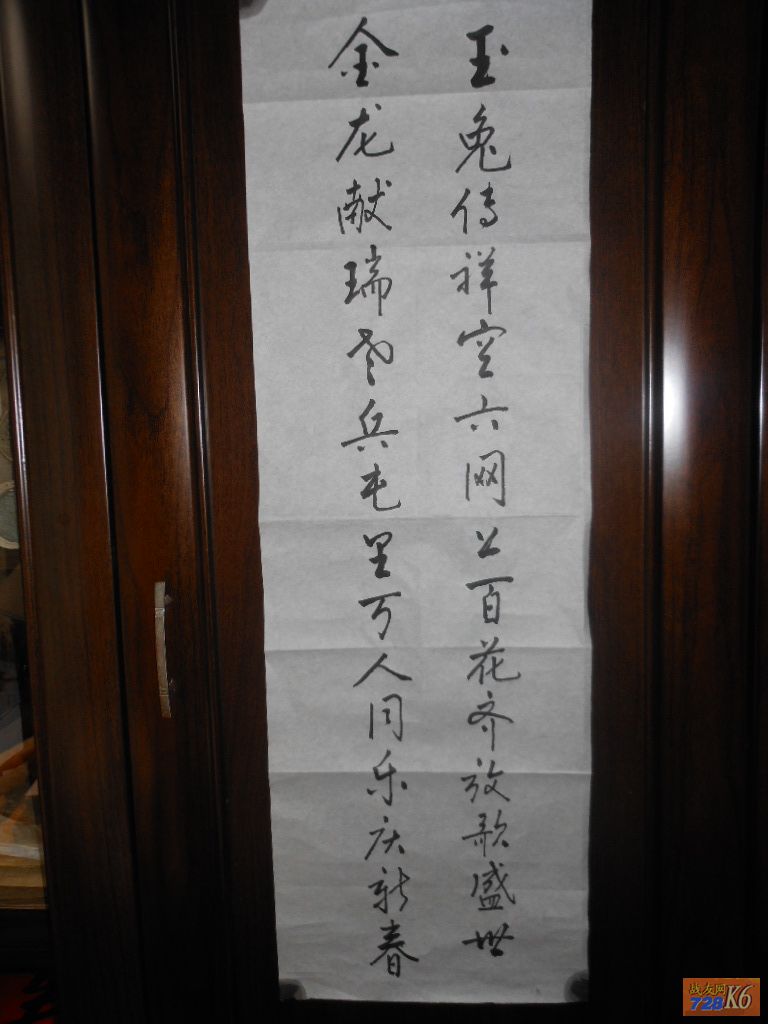 玉兔传祥空六网上百花齐放歌盛世
金龙献瑞老兵屯里万人同乐庆新春
战友网
728 K6